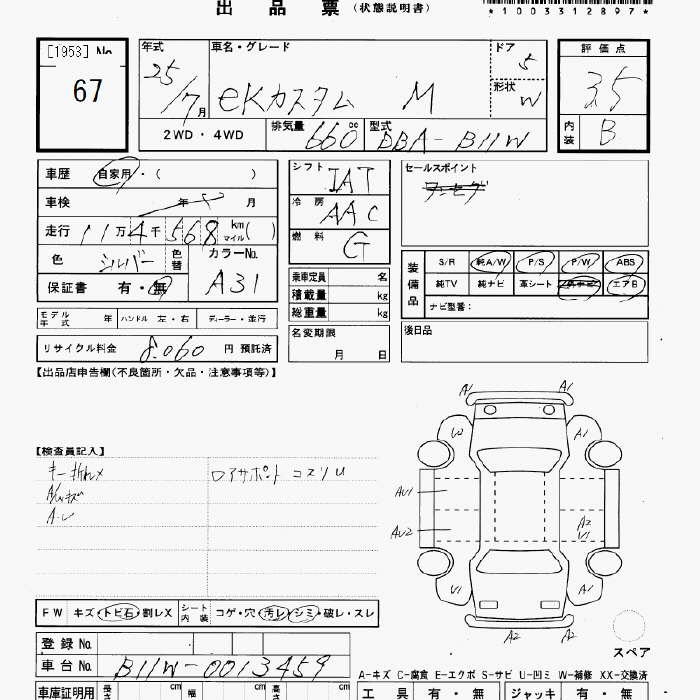 出 品 票 (状態説明書)
*1003312897*
[1953] No.
67
年式 25/7月
車名・グレード eKカスタム M
ドア 5
形状 W
2WD・4WD
排気量 660 cc
型式 DBA-B11W
評価点 3.5
内装 B
車歴 自家用・( )
車検 年 月
走行 11万4千568 km マイル( )
色 シルバー
色替
カラーNo. A31
保証書 有・無
モデル年式 年
ハンドル 左・右
ディーラー・並行
リサイクル料金 8.060 円 預託済
シフト IAT
冷房 AAC
燃料 G
乗車定員 名
積載量 kg
総重量 kg
名変期限 月 日
セールスポイント
装備品
S/R 純A/W P/S P/W ABS
純TV 純ナビ 革シート エアB
ナビ型番:
後日品
【出品店申告欄(不良箇所・欠品・注意事項等)】
【検査員記入】
キー折れ×
ロアサポート コスリU
A1 A1
U2 A1
AU1
AU2
A2
U1
U1 A1
A2 A2
スペア
FW キズ・トビ石・割レX
シート内装 コゲ・穴・汚レ・シミ・破レ・スレ
登録 No.
車台 No. B11W-0013459
A-キズ C-腐食 E-エクボ S-サビ U-凹ミ W-補修 XX-交換済
車庫証明用 長さ cm 幅 cm 高さ cm
工具 有・無
ジャッキ 有・無